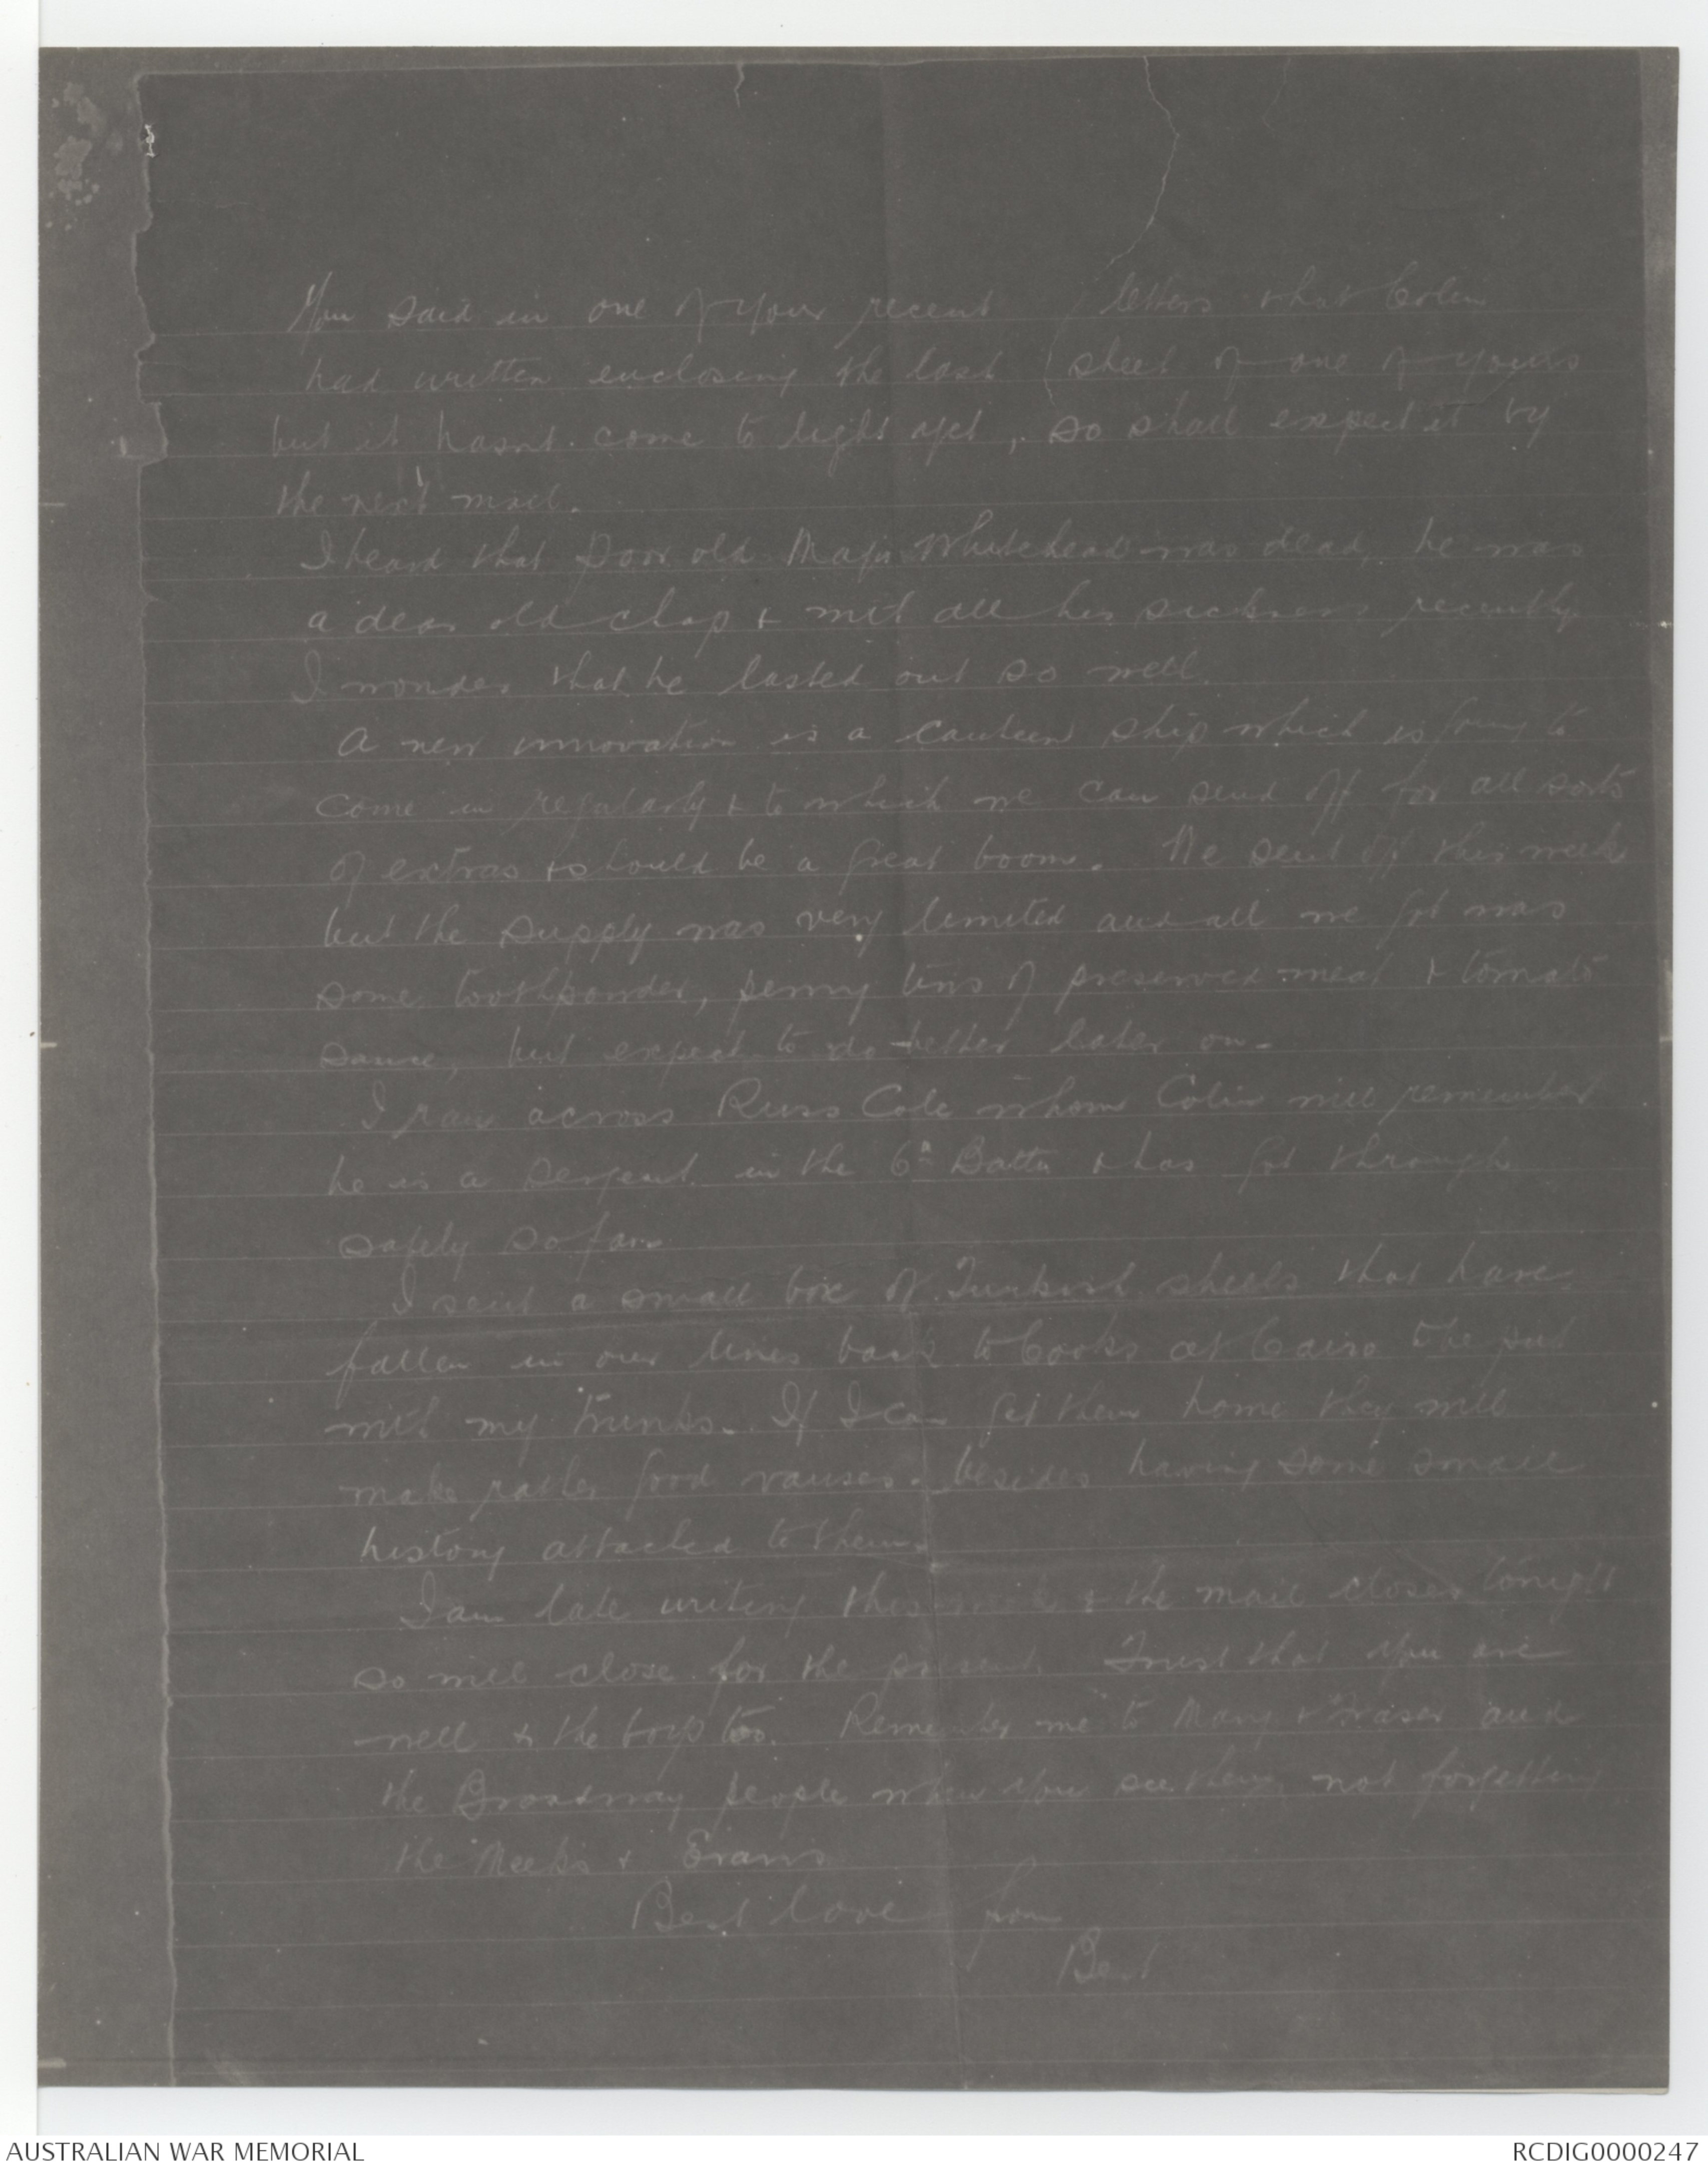 You said in one of your recent letters that Colin
had written enclosing the last sheet of one of yours
but it hasnt come to light yet, so shall expect it by
the next mail.
I heard that poor old Major Whitehead was dead, he was
a dear old chap & with all his sickness recently
I wonder that he lasted out so well.
A new innovation is a canteen ship which is going to
come in regularly & to which we can send off for all sorts
of extras & should be a great boom. We sent off this week
but the supply was very limited and all we got was
some toothpowder, penny tins of preserved meat & tomato
sauce, but expect to do better later on.
I ran across Russ Cole whom Colin will remember
he is a Sergeant in the 6th Battn & has got through
safely so far.
I sent a small box of Turkish shells that have
fallen in our lines back to Cooks at Cairo to be put
with my trunks. If I can get them home they will
make rather good vauses. besides having some small
history attached to them.
I am late writing this week & the mail closes tonight
so will close for the present. Trust that you are
well & the boys too. Remember me to Mary & Fraser and
the Broadway people when you see them, not forgetting
the Meeks & Evans
Best love from
Bert
AUSTRALIAN WAR MEMORIAL
RCDIG0000247